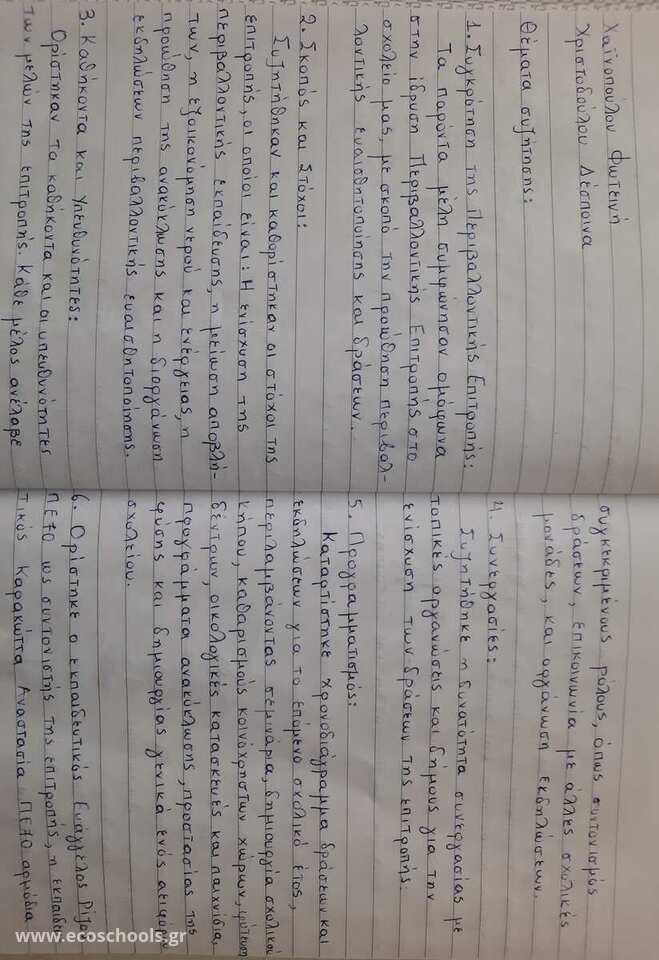 Χαϊνοπούλου Φωτεινή
Χριστοδούλου Δέσποινα
Θέματα συζήτησης:
1. Συγκρότηση της Περιβαλλοντικής Επιτροπής:
Τα παρόντα μέλη συμφώνησαν ομόφωνα
στην ίδρυση Περιβαλλοντικής Επιτροπής στο
σχολείο μας, με σκοπό την προώθηση περιβαλ-
λοντικής ευαισθητοποίησης και δράσεων.
2. Σκοπός και Στόχοι:
Συζητήθηκαν και καθορίστηκαν οι στόχοι της
επιτροπής, οι οποίοι είναι: Η ενίσχυση της
περιβαλλοντικής εκπαίδευσης, η μείωση αποβλή-
των, η εξοικονόμηση νερού και ενέργειας, η
προώθηση της ανακύκλωσης και η διοργάνωση
εκδηλώσεων περιβαλλοντικής ευαισθητοποίησης.
3. Καθήκοντα και Υπευθυνότητες:
Ορίστηκαν τα καθήκοντα και οι υπευθυνότητες
των μελών της επιτροπής. Κάθε μέλος ανέλαβε
συγκεκριμένους ρόλους, όπως συντονισμός
δράσεων, επικοινωνία με άλλες σχολικές
μονάδες, και οργάνωση εκδηλώσεων.
4. Συνεργασίες:
Συζητήθηκε η δυνατότητα συνεργασίας με
τοπικές οργανώσεις και δήμους για την
ενίσχυση των δράσεων της επιτροπής.
5. Προγραμματισμός:
Καταρτίστηκε χρονοδιάγραμμα δράσεων και
εκδηλώσεων για το επόμενο σχολικό έτος,
περιλαμβάνοντας σεμινάρια, δημιουργία σχολικού
κήπου, καθαρισμούς κοινόχρηστων χώρων, φύτευση
δέντρων, οικολογικές κατασκευές και παιχνίδια,
προγράμματα ανακύκλωσης, προστασίας της
φύσης και δημιουργίας γενικά ενός αειφόρου
σχολείου.
6. Ορίστηκε ο εκπαιδευτικός Ευάγγελος
ΠΕ70 ως συντονιστής της επιτροπής, η εκπαιδευ
τικός Καρακώττα Αναστασία ΠΕ70 αρμόδια
www.ecoschools.gr